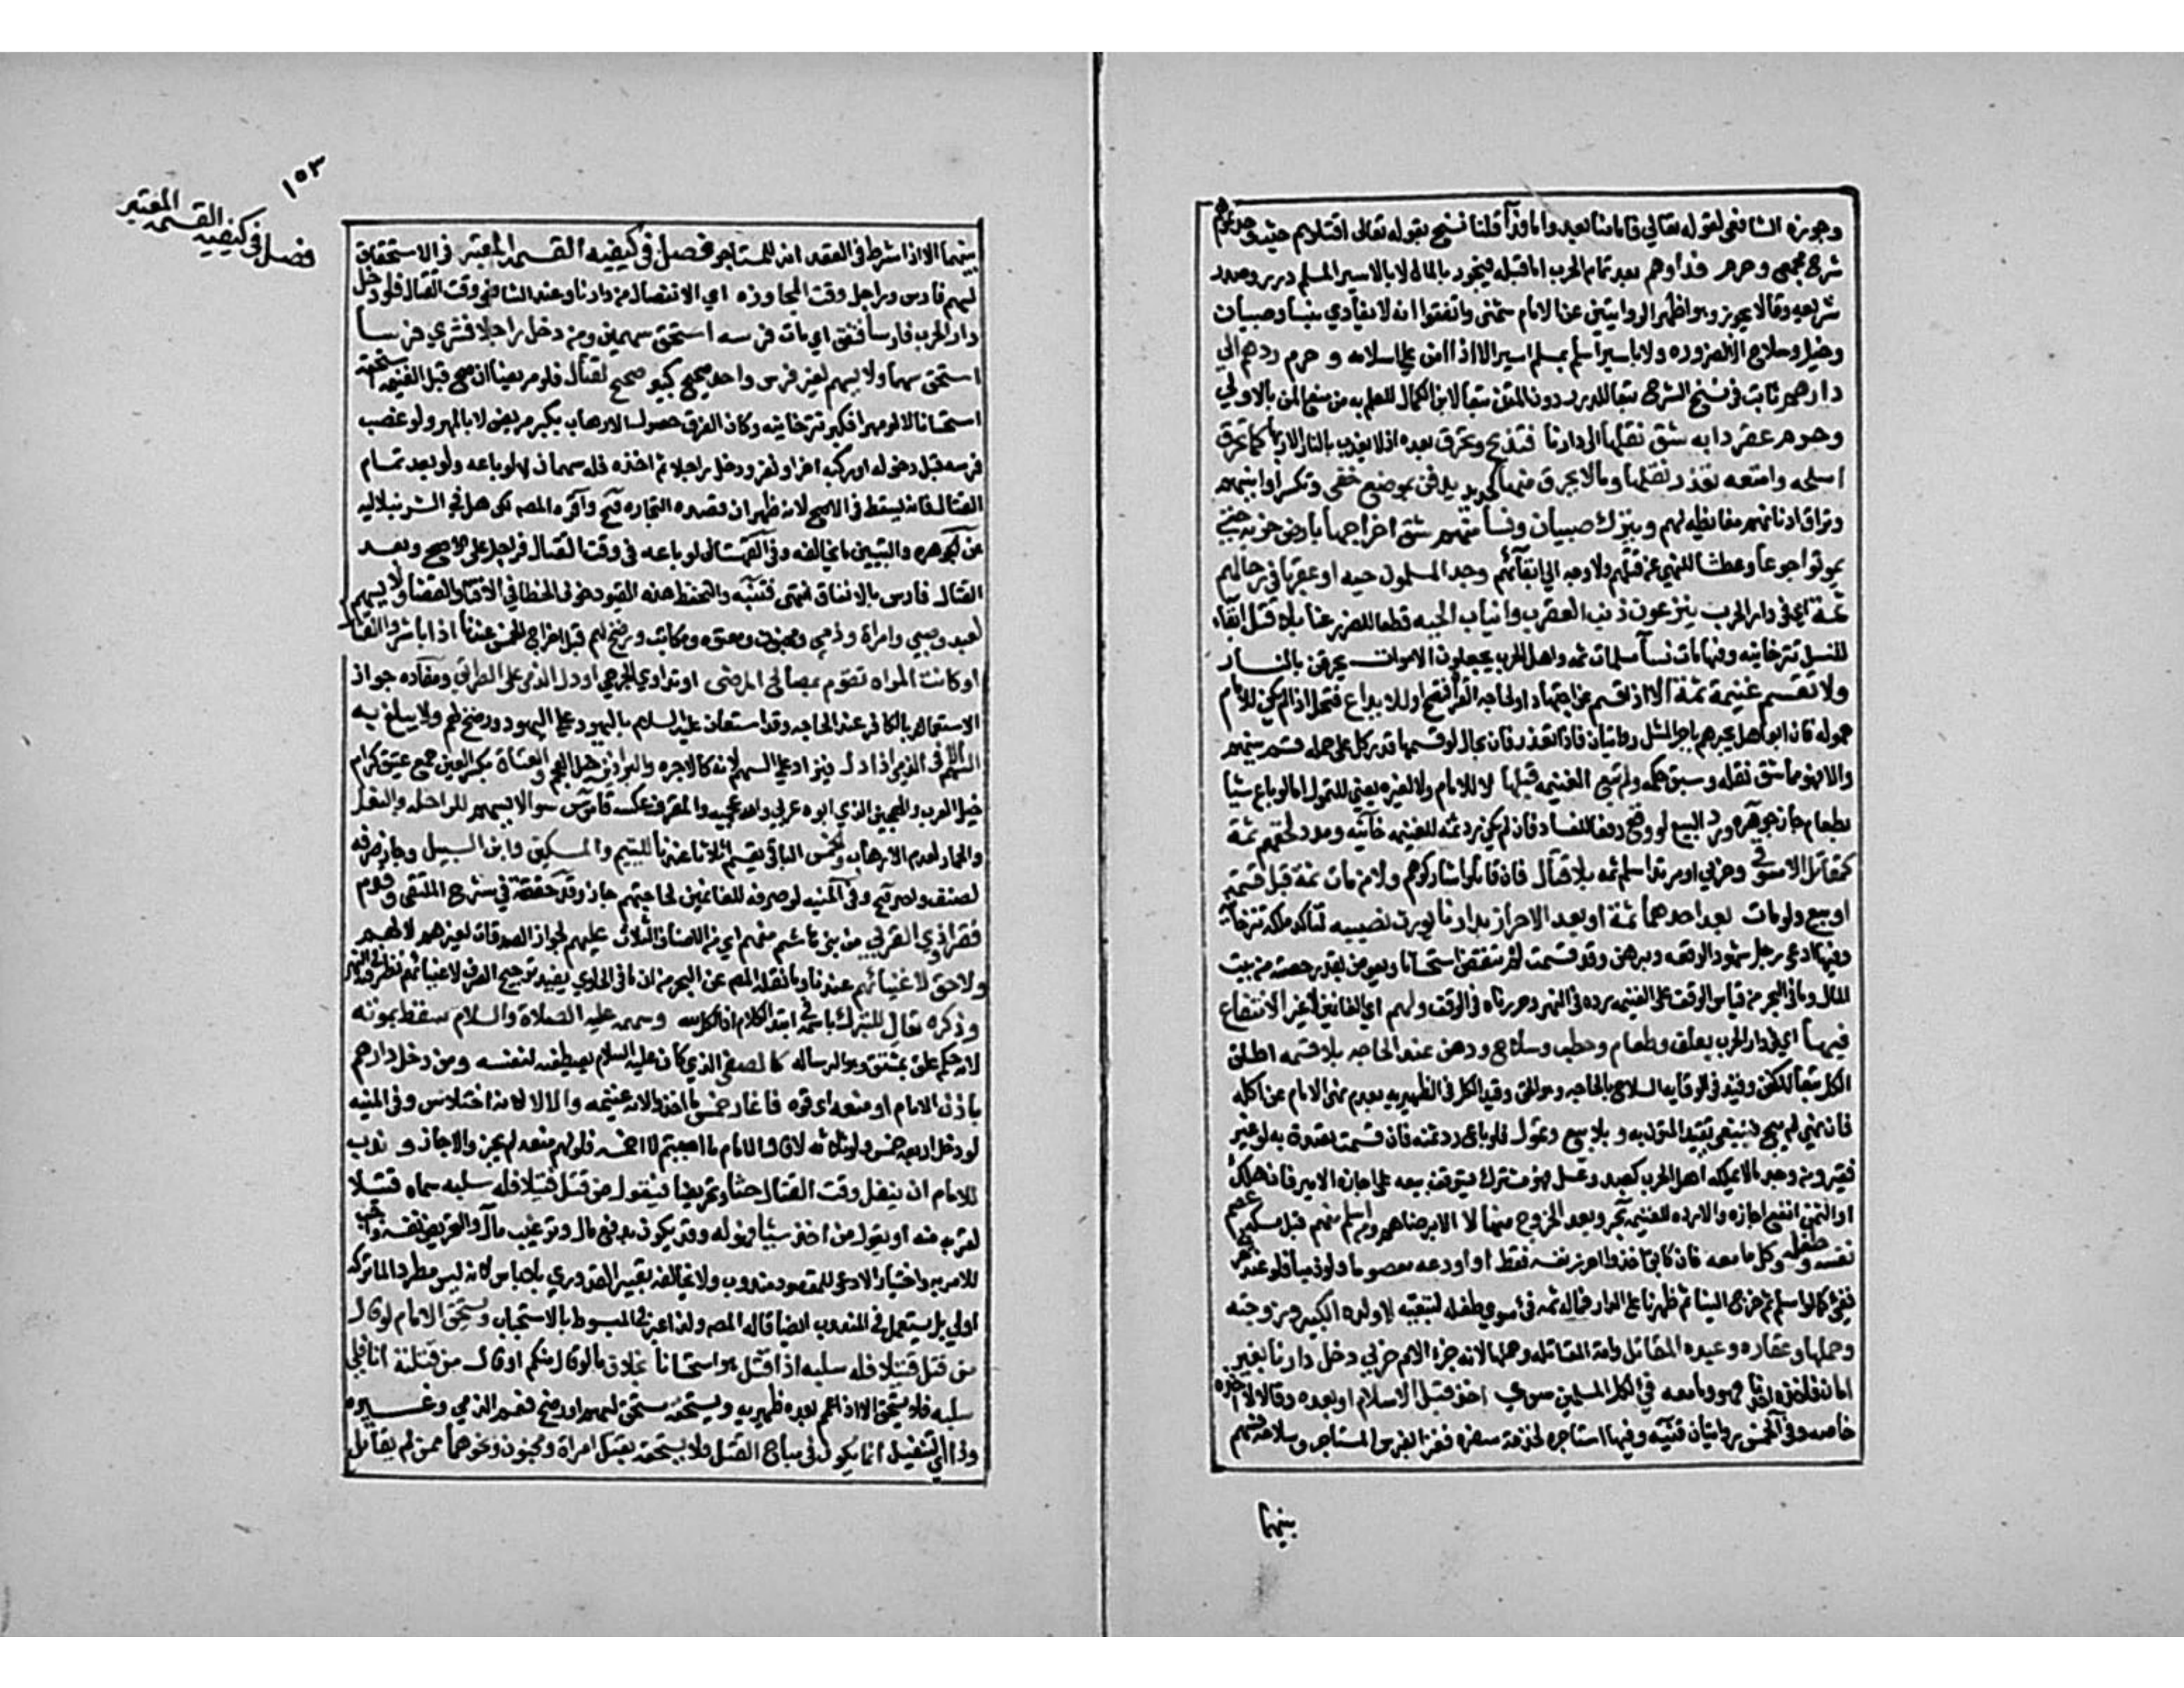 وجوزه الشافعي لقوله تعالى فاما منا بعد واما فدآ قلنا نسخ بقوله تعالى اقتلوا المشركين حيث وجدتموهم
شرح مجمع وحرم فداوهم بعد تمام الحرب اما قبله فيجوز بالمال لا بالاسير المسلم درر وصدر
شريعه وقالا يجوز وهو اظهر الروايتين عن الامام شمني واتفقوا انه لا يفادي بنسا وصبيان
وخيل وسلاح الا لضروره ولا باسير اسلم بمسلم اسير الا اذا امن على اسلامه و حرم ردهم الى
دارهم ثابت في نسخ الشرح تبعا للدرر دون المتن تبعا لابن الكمال للعلم به من منع المن بالاولى
وحرم عقر دابه شق نقلها الى دارنا فتذبح وتحرق بعده اذ لا يعذب بالنار الا ربها كما تحرق
اسلحه وامتعه تعذر نقلها وما لا يحرق منها كحديد يدفن بموضع خفي وتكسر اوانيهم
وتراق ادهانهم مغايظه لهم ويترك صبيان ونسا منهم شق اخراجها بارض خربه حتى
يموتوا جوعا وعطشا للنهي عن قتلهم ولا وجه الى ابقآئهم وجد المسلمون حيه او عقربا في رحالهم
ثمة اي في دار الحرب ينزعون ذنب العقرب وانياب الحيه قطعا للضرر عنا بلا قتل ابقاء
للنسل تترخانيه وفيها مات نسآ مسلمات ثمه واهل الحرب يجامعون الاموات يحرقن بالنار
ولا تقسم غنيمة ثمة الا اذا قسم عن اجتهاد او لحاجه الغزاة فتصح او للايداع فتحل اذا لم يكن للامام
حموله فان ابوا هل يجبرهم باجر المثل روايتان فاذا تعذر فان بحال لو قسمها قدر كل على حمله قسم بينهم
والا فهو مما شق نقله وسبق حكمه ولم تبع الغنيمه قبلها لا للامام ولا لغيره يعني للتمول اما لو باع شيا
بطعام جاز جوهره ورد البيع لو وقع دفعا للفساد فان لم يكن رد ثمنه للغنيمه خانيه ومدد لحقهم ثمة
كمقاتل لا سوقي وحربي او مرتد اسلم ثمه بلا قتال فان قاتلوا شاركوهم ولا من مات ثمة قبل قسمة
او بيع ولو مات بعد احدهما ثمة او بعد الاحراز بدارنا يورث نصيبه لتاكد ملكه تترخانيه
وفيها ادعى رجل شهود الوقعه وبرهن وقد قسمت لم تنقض استحسانا ويعوض بقدر حصته من بيت
المال وما في البحر من قياس الوقف على الغنيمه رده في النهر وحررناه في الوقف ولهم اي الغانمين لا غير الانتفاع
فيها اي في دار الحرب بعلف وطعام وحطب وسلاح ودهن عند الحاجه بلا قسمه اطلق
الكل تبعا للكنز وقيد في الوقايه السلاح بالحاجه وهو الحق وقيد الكل في الظهيريه بعدم نهي الامام عن اكله
فان نهى لم يبح فينبغي تقييد المتون به و بلا بيع وتمول فلو باع رد ثمنه فان قسمت تصدق به لو غير
فقير ومن وجد ما لا يملكه اهل الحرب كصيد وعسل فهو مشترك فيتوقف بيعه على اجازة الامير فان هلك
او الثمن انفع اجازه والا رده للغنيمه بحر وبعد الخروج منها لا الا برضاهم ومن اسلم منهم قبل مسكه عصم
نفسه وطفله وكل ما معه فان كانوا اخذوا احرز نفسه فقط او اودعه معصوما ولو ذميا فلو عند حربي
ففيء كما لو اسلم ثم خرج الينا ثم ظهرنا على الدار فماله ثمه فيء سوى طفله لتبعيته لا ولده الكبير وزوجته
وحملها وعقاره وعبده المقاتل وامته المقاتله وحملها لانه جزء الام حربي دخل دارنا بغير
امان فاخذه احدنا فهو وما معه فيء لكل المسلمين سوي اخذ قبل الاسلام او بعده وقالا لاخذه
خاصه وفي الخمس روايتان قنيه وفيها استاجره لخدمة سفره فغزا بفرس المستاجر وسلاحه فسهمه
بينهما
١٥٣
فصل في كيفيه القسمه المعتبر
بينهما الا اذا شرط في العقد انه للمستاجر فصل في كيفيه القسمه المعتبر في الاستحقاق
لسهم فارس وراجل وقت المجاوزه اي الانفصال من دارنا وعند الشافعي وقت القتال فلو دخل
دار الحرب فارسا فنفق اي مات فرسه استحق سهمين ومن دخل راجلا فشرى فرسا
استحق سهما ولا يسهم لغير فرس واحد صحيح كبير صحيح لقتال فلو مريضا ان صح قبل الغنيمه استحقه
استحسانا لا لو مهرا فكبر تترخانيه وكان الفرق حصول الارهاب بكبير مريض لا بالمهر ولو غصب
فرسه قبل دخوله او ركبه اخر او نفر ودخل راجلا ثم اخذه فله سهمان لا لو باعه ولو بعد تمام
القتال فانه يسقط في الاصح لانه ظهر ان قصده التجاره فتح واقره المص لكن نقل في الشرنبلاليه
عن الجوهره والتبيين ما يخالفه وفي القهستاني لو باعه في وقت القتال فراجل على الاصح وبعد
القتال فارس بالاتفاق انتهى فتنبه ولتحفظ هذه القيود خوف الخطا في الافتا والقضا ولا يسهم
لعبد وصبي وامراة وذمي ومجنون ومعتوه ومكاتب ورضخ لهم قبل اخراج الخمس عندنا اذا باشروا القتال
او كانت المراه تقوم بمصالح المرضى او تداوي الجرحى او دل الذمي على الطريق ومفاده جواز
الاستعانه بالكافر عند الحاجه وقد استعان عليه السلام باليهود على اليهود ورضخ لهم ولا يبلغ به
السهم الا في الذمي اذا دل فيزاد على السهم لانه كالاجره والبراذين خيل العجم والعتاق بكسر العين جمع عتيق كرام
خيل العرب والهجين الذي ابوه عربي وامه عجميه والمقرف عكسه قاموس سوا لا يسهم للراحله والبغل
والحمار لعدم الارهاب والخمس الباقي يقسم اثلاثا عندنا لليتيم والمسكين وابن السبيل وجاز صرفه
لصنف واحد فتح وفي المنيه لو صرفه للغانمين لحاجتهم جاز وقد حققته في شرح الملتقى وقدم
فقرا ذوي القربى من بني هاشم منهم اي من الاصناف الثلاث عليهم لجواز الصدقات لغيرهم لا لهم
ولا حق لاغنيائهم عندنا وما نقله المص عن البحر من ان ما في الحاوي يفيد ترجيح الصرف لاغنيائهم نظر فيه في النهر
وذكره تعالى للتبرك باسمه في ابتدا الكلام اذ الكل لله وسهمه عليه الصلاة والسلام سقط بموته
لانه حكم علق بمشتق وهو الرساله كالصفي الذي كان عليه السلام يصطفيه لنفسه ومن دخل دارهم
باذن الامام او منعه اي قوه فاغار خمس ما اخذوا لانه غنيمه والا لا لانه اختلاس وفي المنيه
لو دخل اربعه خمس ولو ثلاثه لا قال الامام ما اصبتم لا اخمسه فلو لهم منعه لم يجز والا جاز و ندب
للامام ان ينفل وقت القتال حثا وتحريضا فيقول من قتل قتيلا فله سلبه سماه قتيلا
لقربه منه او يقول من اخذ شيا فهو له وقد يكون بدفع مال وترغيب مآل والتحريض نفسه واجب
للامر به واختيار الادعى للمقصود مندوب ولا يخالفه تعبير القدوري بلا باس لانه ليس مطردا لما تركه
اولى بل يستعمل في المندوب ايضا قاله المص ولذا عبر في المبسوط بالاستحباب ويستحق الامام لو قال
من قتل قتيلا فله سلبه اذا قتل هو استحسانا بخلاف ما لو قال منكم او قال من قتلته انا فلي
سلبه فلا يستحق الا اذا عمم بعده ظهيريه ويستحقه مستحق لسهم او رضخ فعم الذمي وغيره
وذا اي التنفيل انما يكون في مباح القتل فلا يستحقه بقتل امراة ومجنون ونحوهما ممن لم يقاتل